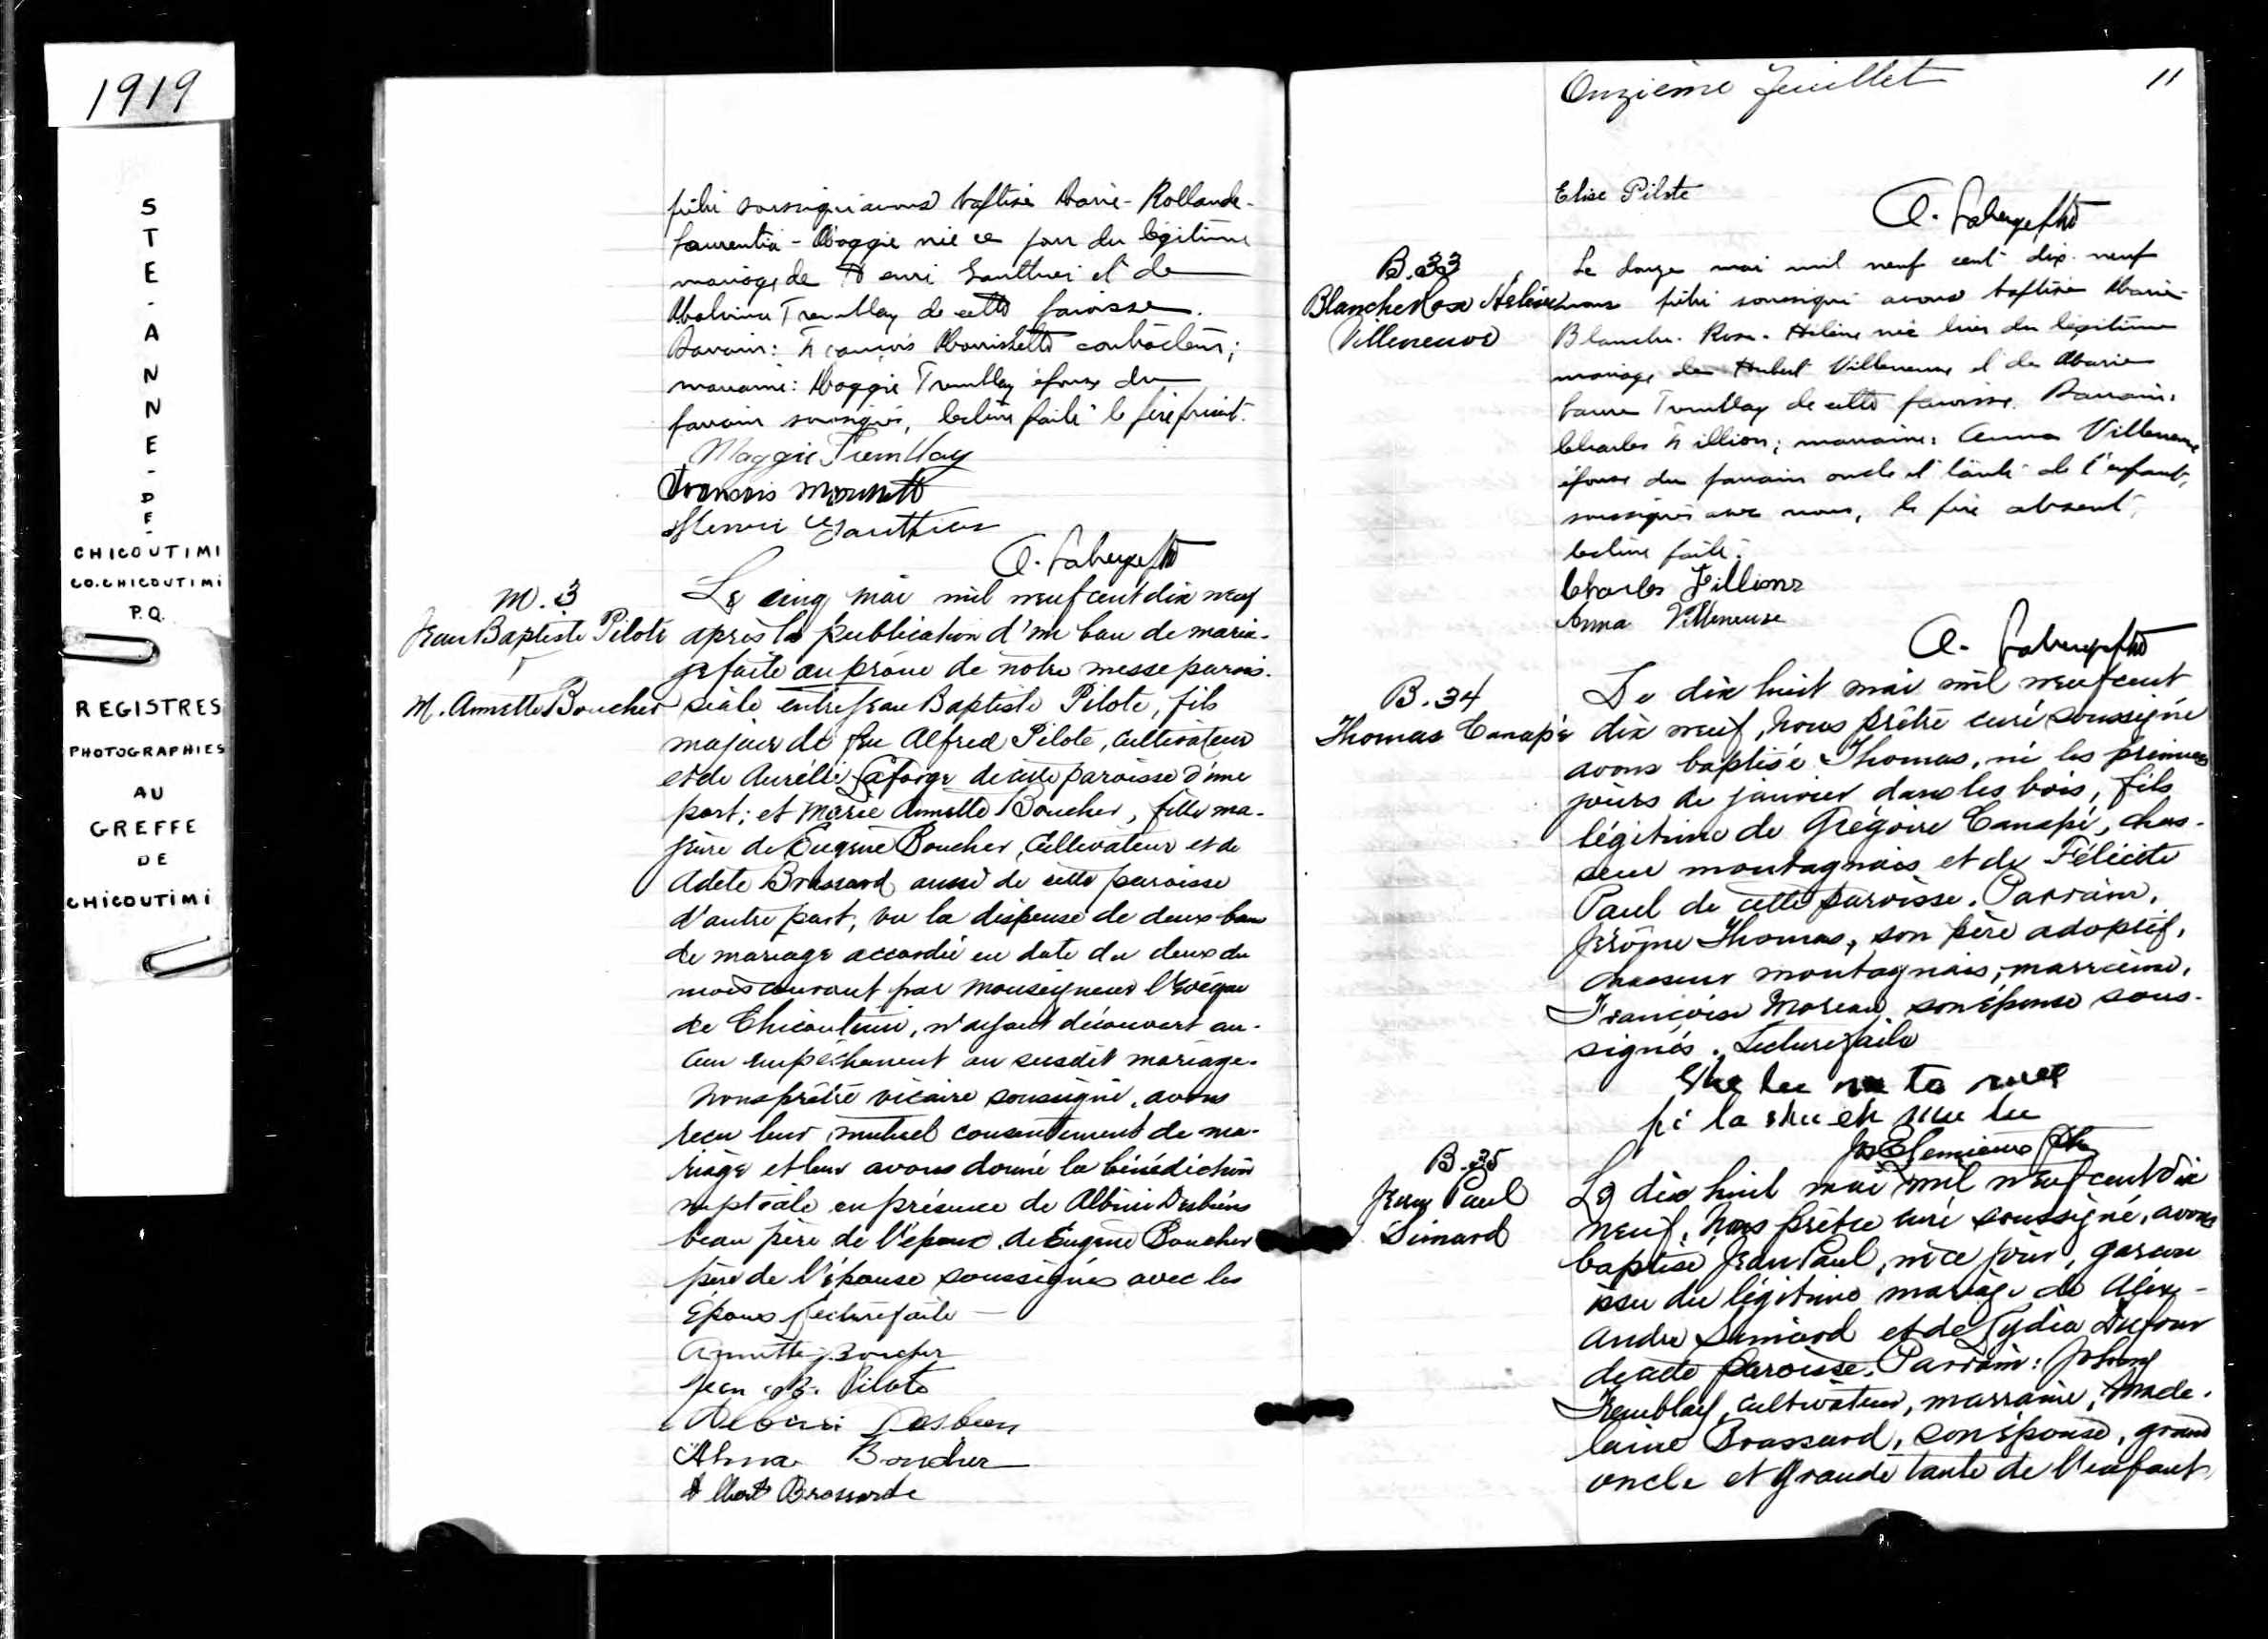 1919
STE-ANNE-DE-
CHICOUTIMI
CO. CHICOUTIMI
P.Q.
REGISTRES
PHOTOGRAPHIES
AU
GREFFE
DE
CHICOUTIMI
prêtre soussigné avons baptisé Marie-Rollande-
Laurentia-Maggie née ce jour du légitime
mariage de Henri Gauthier et de
Malvina Tremblay de cette paroisse.
Parrain: François Morissette contracteur;
marraine: Maggie Tremblay épouse du
parrain soussignés, lecture faite le père présent.
Maggie Tremblay
Francois Morissette
Henri Gauthier
A. Laberge ptre
M. 3
Jean Baptiste Pilote
&
M. Annette Boucher
Le cinq mai mil neuf cent dix neuf
après la publication d'un ban de maria-
ge faite au prône de notre messe parois-
siale entre Jean Baptiste Pilote, fils
majeur de feu Alfred Pilote, cultivateur
et de Aurélie Laforge de cette paroisse d'une
part; et Marie Annette Boucher, fille ma-
jeure de Eugène Boucher, cultivateur et de
Adèle Brassard aussi de cette paroisse
d'autre part, vu la dispense de deux bans
de mariage accordée en date du deux du
mois courant par Monseigneur l'Evêque
de Chicoutimi, n'ayant découvert au-
cun empêchement au susdit mariage.
Nous prêtre vicaire soussigné, avons
reçu leur mutuel consentement de ma-
riage et leur avons donné la bénédiction
nuptiale en présence de Albini Desbiens
beau père de l'époux, de Eugène Boucher
père de l'épouse soussignés avec les
Epoux Lecture faite —
Annette Boucher
Jean B. Pilote
Albini Desbiens
Alma Boucher
Albert Brassard
Onzième feuillet 11
Elise Pilote
A. Laberge ptre
B. 33
Blanche Rose Hélène
Villeneuve
Le douze mai mil neuf cent dix-neuf
nous prêtre soussigné avons baptisé Marie-
Blanche-Rose-Hélène née hier du légitime
mariage de Hubert Villeneuve et de Marie
Laure Tremblay de cette paroisse. Parrain:
Charles Fillion; marraine: Anna Villeneuve
épouse du parrain oncle et tante de l'enfant,
soussignés avec nous, le père absent,
lecture faite.
Charles Fillions
Anna Villeneuve
A. Laberge ptre
B. 34
Thomas Canapé
Le dix huit mai mil neuf cent
dix neuf, Nous prêtre curé soussigné
avons baptisé Thomas, né les premiers
jours de janvier dans les bois, fils
légitime de Grégoire Canapé, chas-
seur montagnais et de Félicité
Paul de cette paroisse. Parrain,
Jérôme Thomas, son père adoptif,
chasseur montagnais; marraine,
Françoise Moreau, son épouse sous-
signés. Lecture faite
B. 35
Jean Paul
Simard
Le dix huit mai mil neuf cent dix
neuf, Nous prêtre curé soussigné, avons
baptisé Jean Paul, né ce jour, garçon
issu du légitime mariage de Alex-
andre Simard et de Lydia Dufour
de cette paroisse. Parrain: Johny
Tremblay, cultivateur, marraine, Made-
laine Brassard, son épouse, grand
oncle et grande tante de l'enfant,